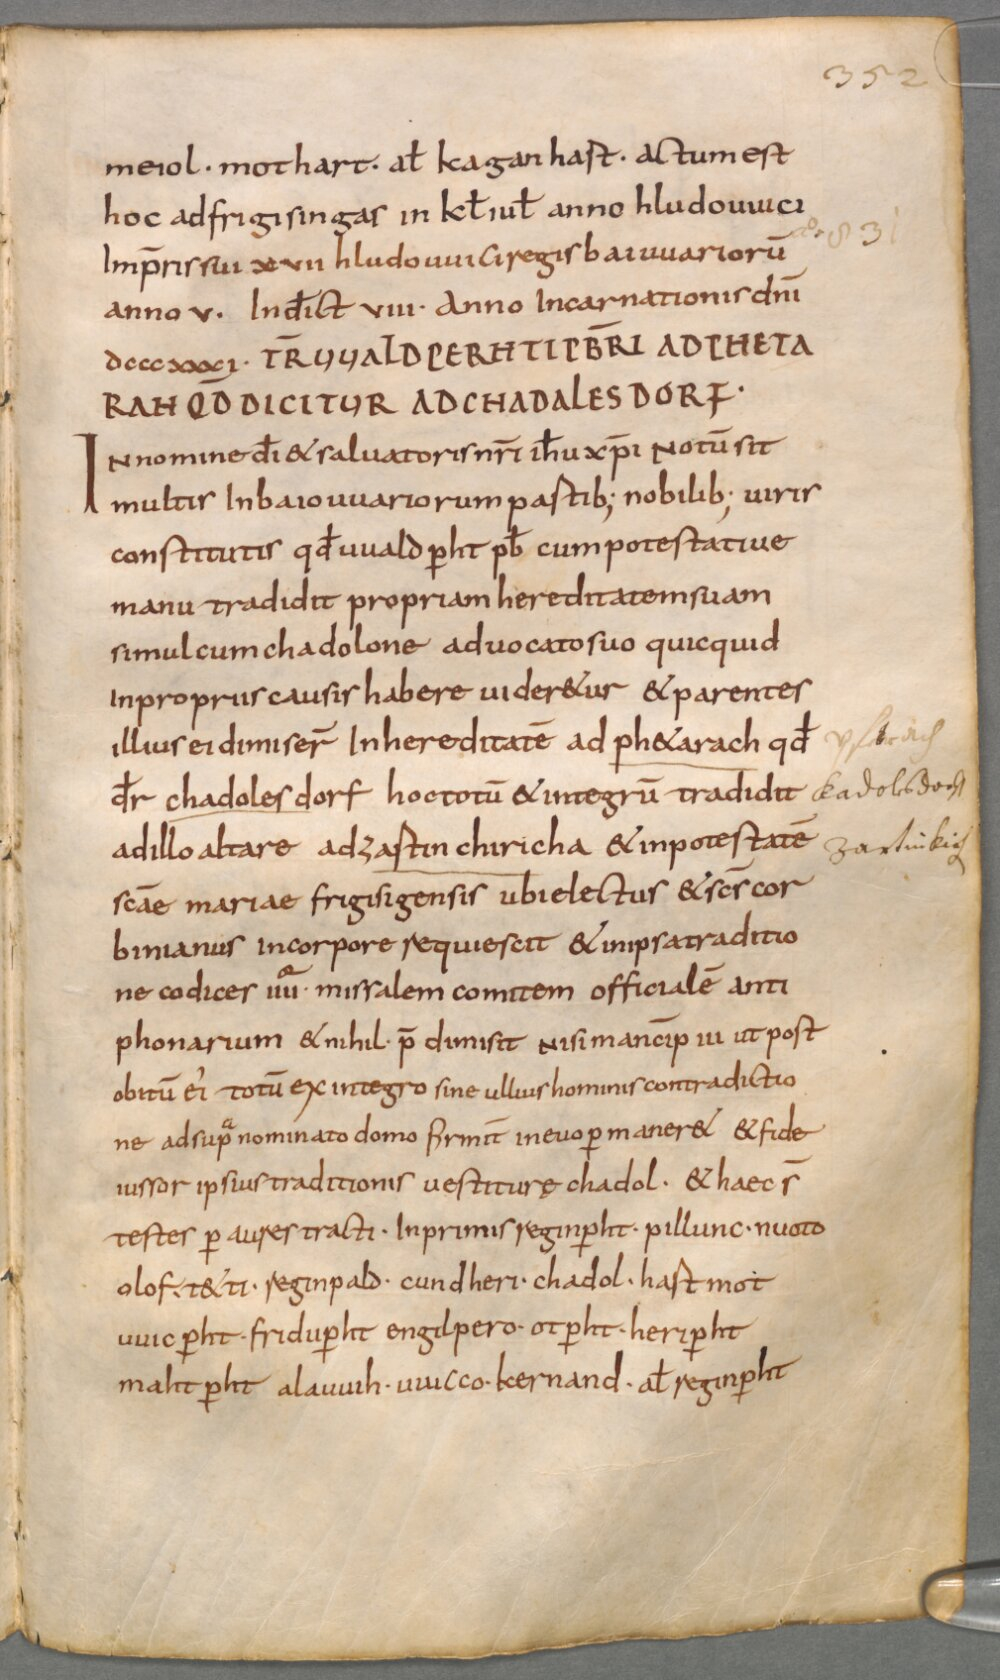 352
meiol · mothart · al̄ kaganhast · actum est
hoc ad frigisingas in kl̄ iul̄ anno hludouuici
Imp̄ris sui xvii hludouuici regis baiuuariorū
831
anno v. Ind̄ict viii · Anno Incarnationis dn̄i
dcccxxxi · TR̄ UUALDPERHTI P̄BR̄I AD PHETA
RAH QD̄ DICITUR AD CHADALESDORF ·
IN nomine dī & saluatoris nr̄i ih̄u xp̄i Notū sit
multis In baiouuariorum pastib; nobilib; uiris
constitutis qd̄ uuald p̄ht pb̄ cum potestatiue
manu tradidit propriam hereditatem suam
simul cum chadolone aduocato suo quicquid
In propriis causis habere uider&ur & parentes
illius ei dimiser̄ In hereditatē ad ph&arach qd̄
d̄r chadolesdorf hoc totū & integrū tradidit
kadolsdorf
ad illo altare ad zastinchiricha & in potestatē
zastinkirch
sc̄ae mariae frigisigensis ubi electus & sc̄s cor
binianus in corpore requiescit & in ipsa traditio
ne codices iiiiᵃ · missalem comitem officialē anti
phonarium & nihil · p̄ dimisit Nisi manc̄ip iii ut post
obitū ei̓ totū ex integro sine ullius hominis contradictio
ne ad supᵃ nominato domo firmit̄ in euo p̄ maner& & fide
iussor ipsius traditionis uestiturę chadol · & haec s̄
testes p̄ aures tracti · In primis reginp̄ht · pillunc · nuoto
olof · t&ti · reginpald · cundheri · chadol · hastmot
uuicp̄ht · fridup̄ht engilpero · otp̄ht · herip̄ht
mahtp̄ht alauuih · uuicco · kernand · al̄ reginp̄ht